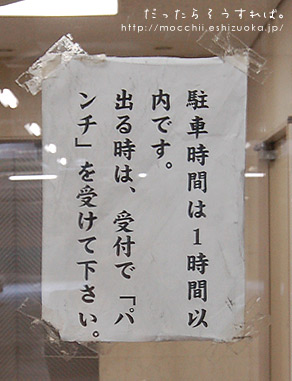 だったらそうすれば。
http://mocchii.eshizuoka.jp/
駐車時間は1時間以
内です。
出る時は、受付で「パ
ンチ」を受けて下さい。